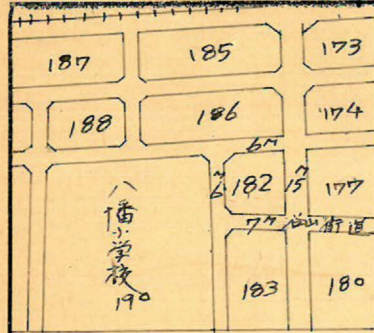 187
185
173
188
186
174
6m
6m
182
15m
177
7m
谷山街道
八幡小学校
190
183
180